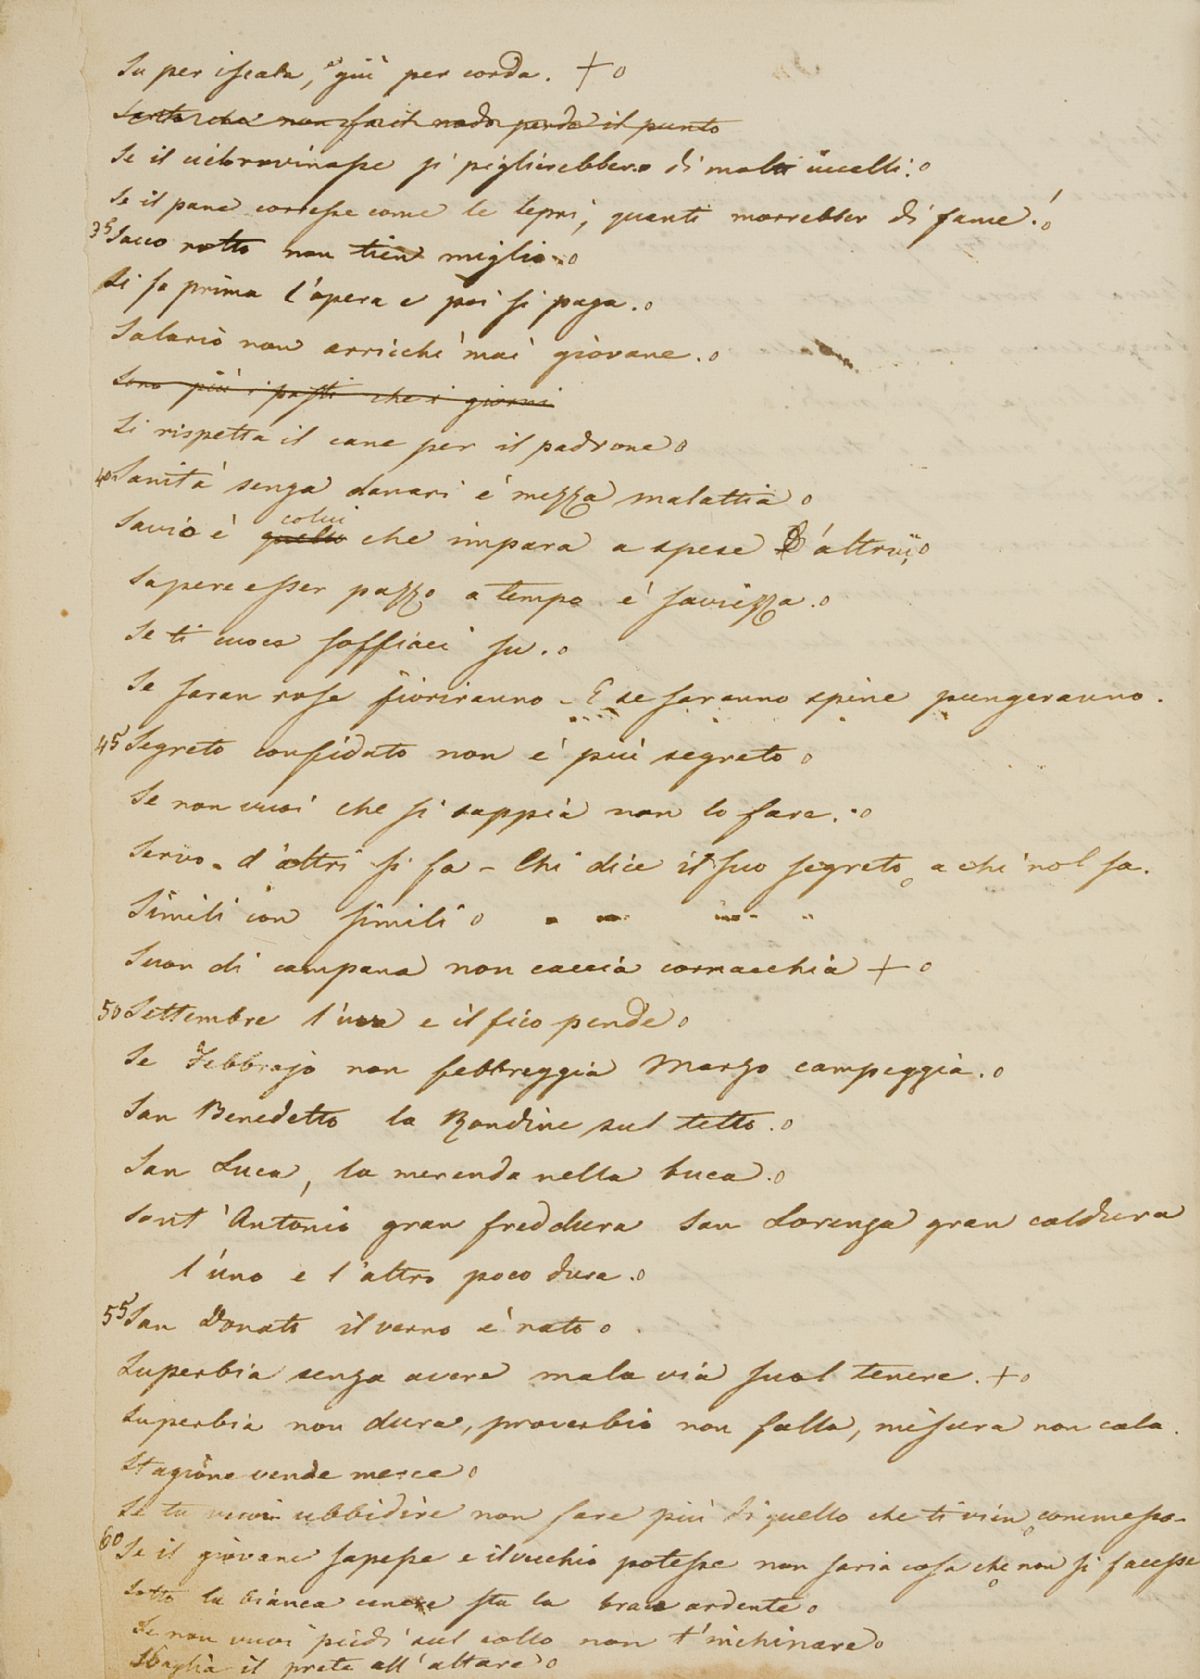 Su per iscala, e giù per corda. + o
Sarto che non fa il nodo perde il punto
Se il ciel rovinasse si piglierebbero di molti uccelli. o
Se il pane corresse come le lepri, quanti morrebber di fame! o
35 Sacco rotto non tien miglio. o
Si fa prima l'opera e poi si paga. o
Salario non arricchì mai giovane. o
Sono più i pasti che i giorni
Si rispetta il cane per il padrone o
40 Sanità senza danari è mezza malattia o
colui
Savio è quello che impara a spese d'altrui o
Sapere esser pazzo a tempo è saviezza. o
Se ti cuoce soffiaci su. o
Se saran rose fioriranno - E se saranno spine pungeranno.
45 Segreto confidato non è più segreto o
Se non vuoi che si sappia non lo fare. o
Servo d'altri si fa - Chi dice il suo segreto o a chi nol sa.
Simili con simili o
Suon di campana non caccia cornacchia + o
50 Settembre l'uva e il fico pende o
Se Febbrajo non febbreggia Marzo campeggia. o
San Benedetto la Rondine sul tetto. o
San Luca, la merenda nella buca. o
Sant'Antonio gran freddura San Lorenzo gran caldura
l'uno e l'altro poco dura. o
55 San Donato il verno è nato o
Superbia senza avere mala via suol tenere. + o
Superbia non dura, proverbio non falla, misura non cala.
Stagione vende merce o
Se tu vuoi ubbidire non fare più di quello che ti vien o commesso.
60 Se il giovane sapesse e il vecchio potesse non saria cosa che non si facesse
o
Sotto la bianca cenere sta la brace ardente o
Se non vuoi piedi sul collo non t'inchinare o
Sbaglia il prete all'altare o